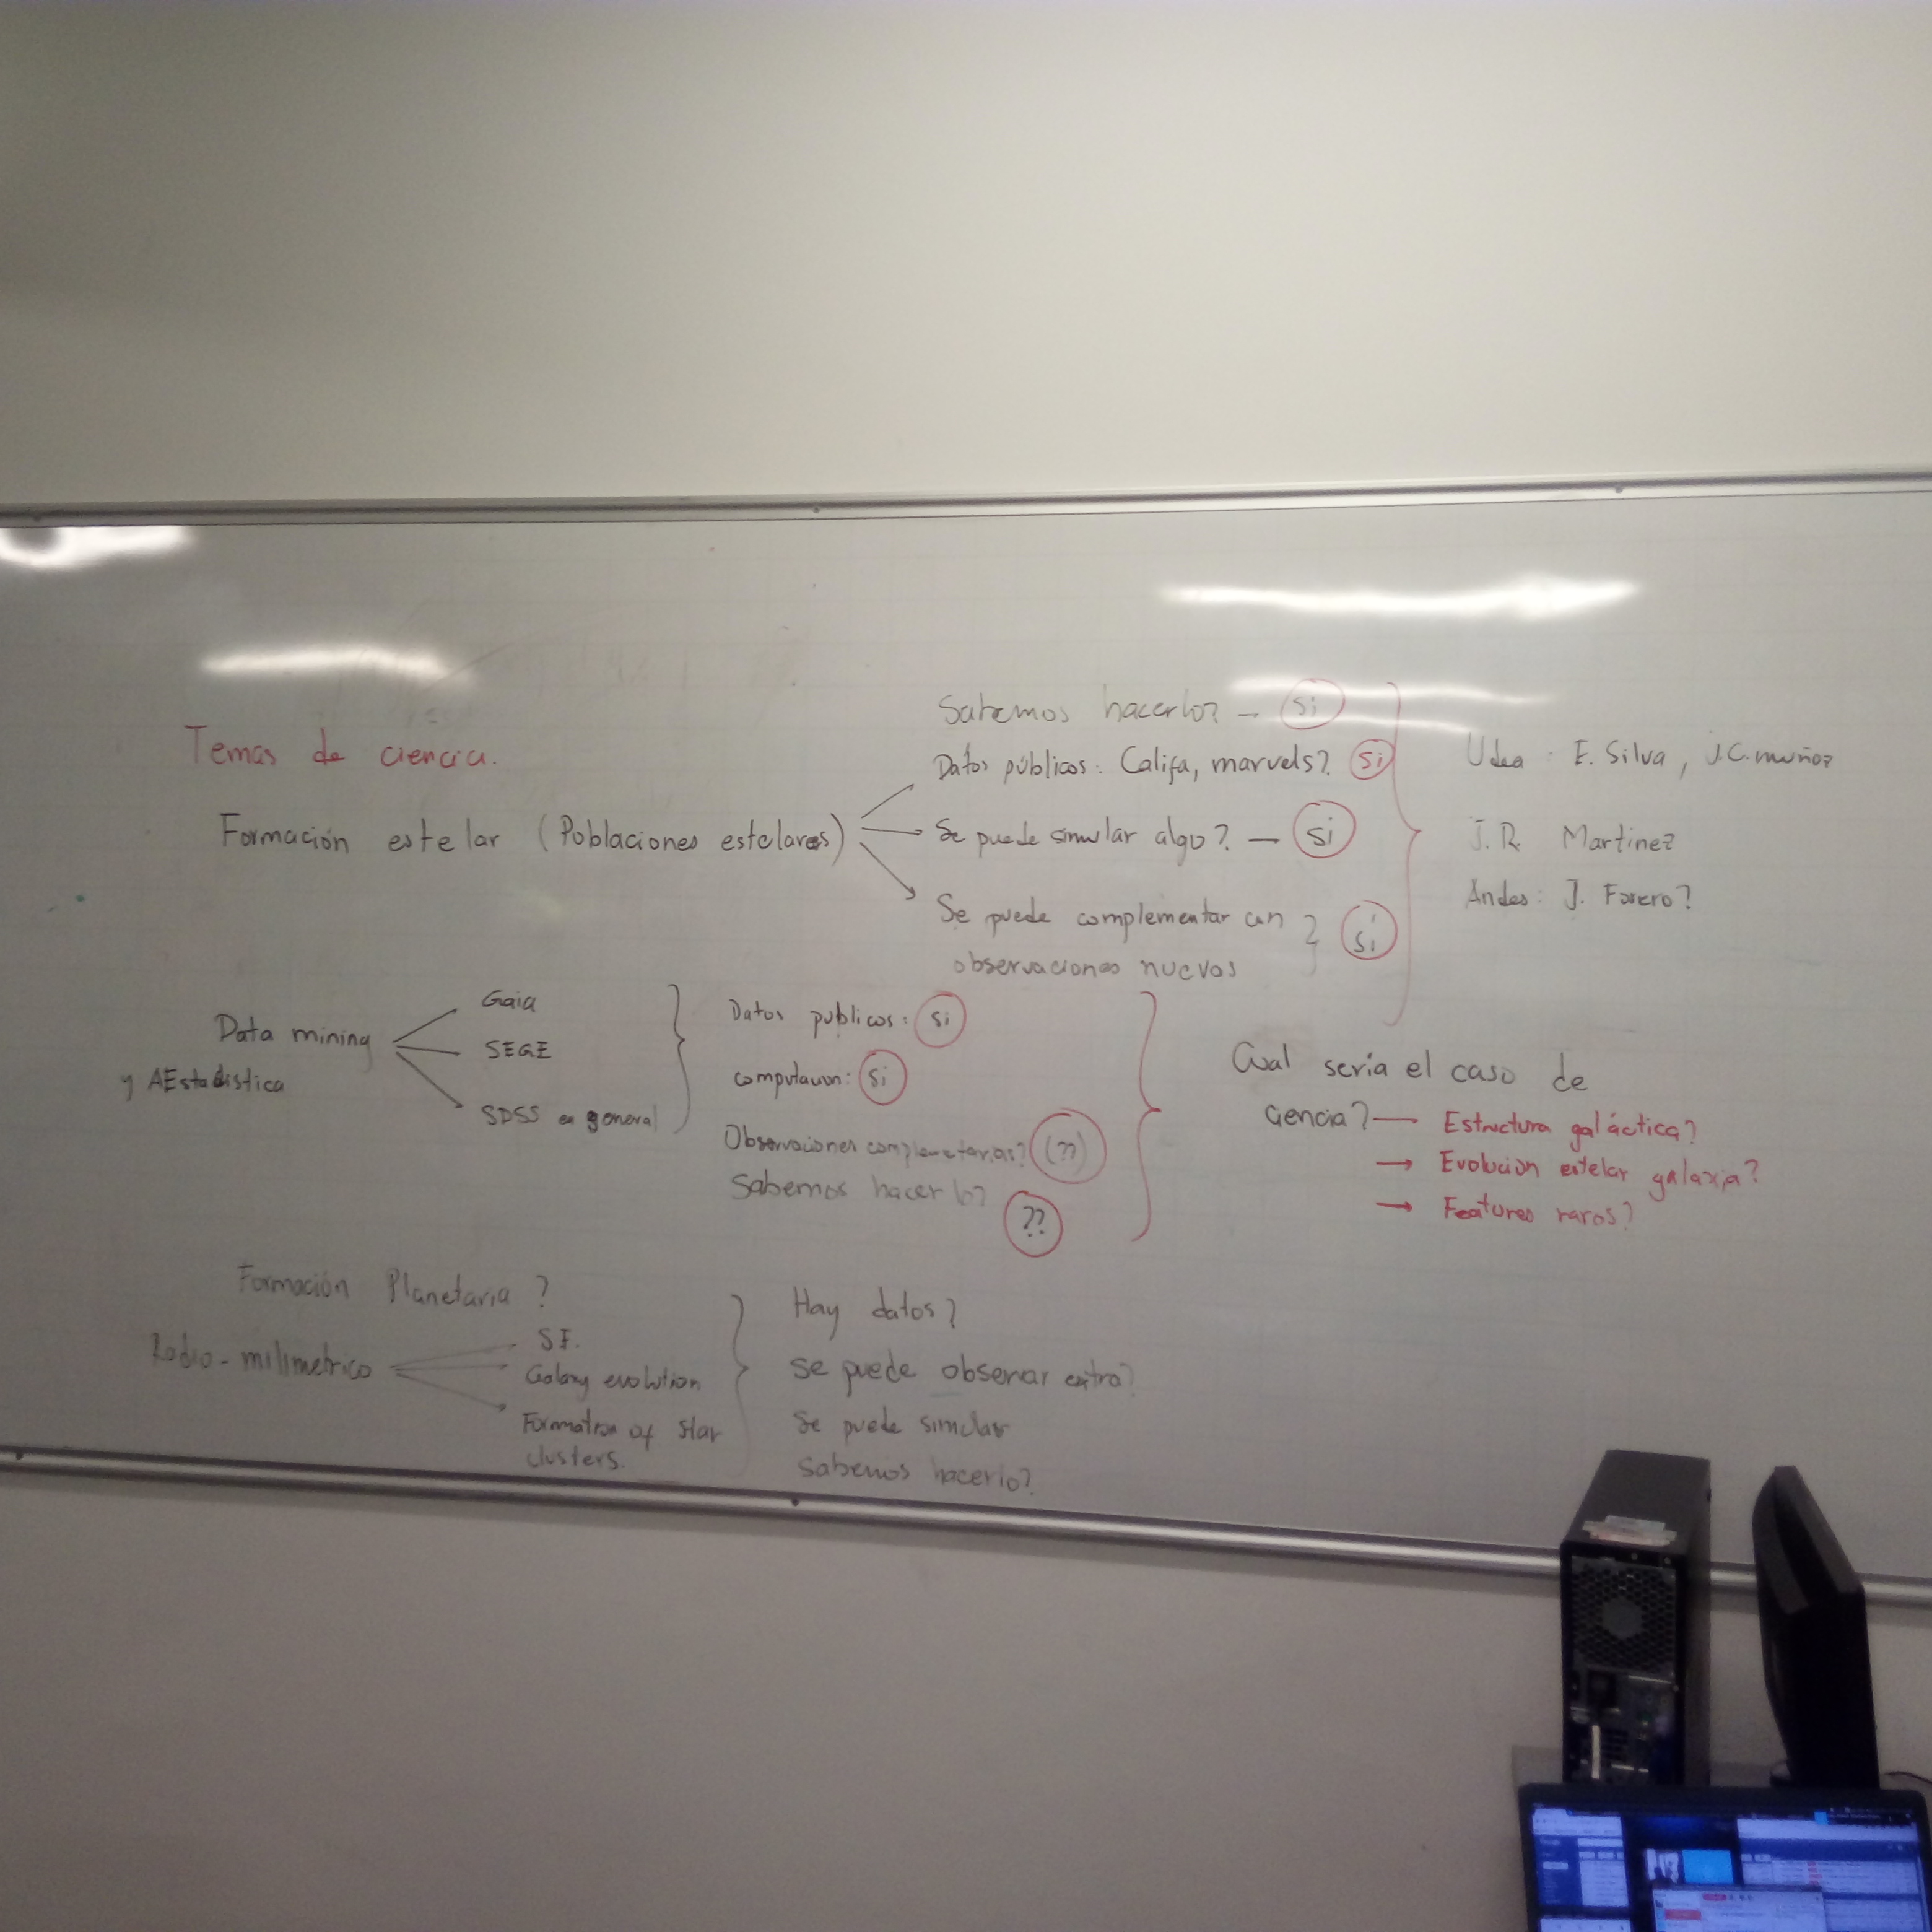 Temas de ciencia.
Formación estelar (Poblaciones estelares)
Sabemos hacerlo? — si
Datos públicos: Califa, marvels? si
Se puede simular algo? — si
Se puede complementar con
observaciones nuevas
si
Udea: E. Silva, J.C. muñoz
J.R. Martinez
Andes: J. Forero?
Data mining
y AEstadistica
Gaia
SEGE
SDSS en general
Datos publicos: si
computacion: si
Observaciones complementarias? (??)
Sabemos hacerlo?
??
Cual sería el caso de
ciencia? — Estructura galáctica?
→ Evolución estelar galaxia?
→ Features raros?
Formación Planetaria?
Radio-milimetrico
S.F.
Galaxy evolution
Formation of star
clusters.
Hay datos?
se puede observar extra?
Se puede simular
Sabemos hacerlo?